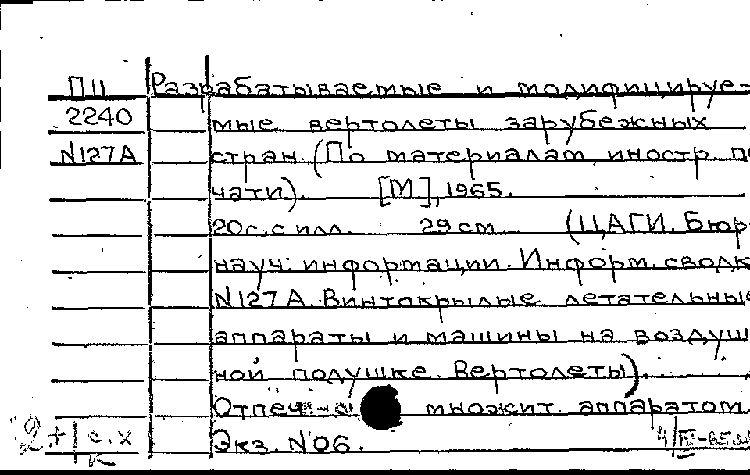 П11 Разрабатываемые и модифицируе-
2240 мые вертолеты зарубежных
N127А стран. (По материалам иностр. пе
чати). [М], 1965.
20с. с илл. 29 см. (ЦАГИ. Бюр
науч. информации. Информ. сводк
N127 А. Винтокрылые летательные
аппараты и машины на воздуш
ной подушке. Вертолеты).
Отпеч. множит. аппаратом.
Экз. N06.
2+1 с.х
к